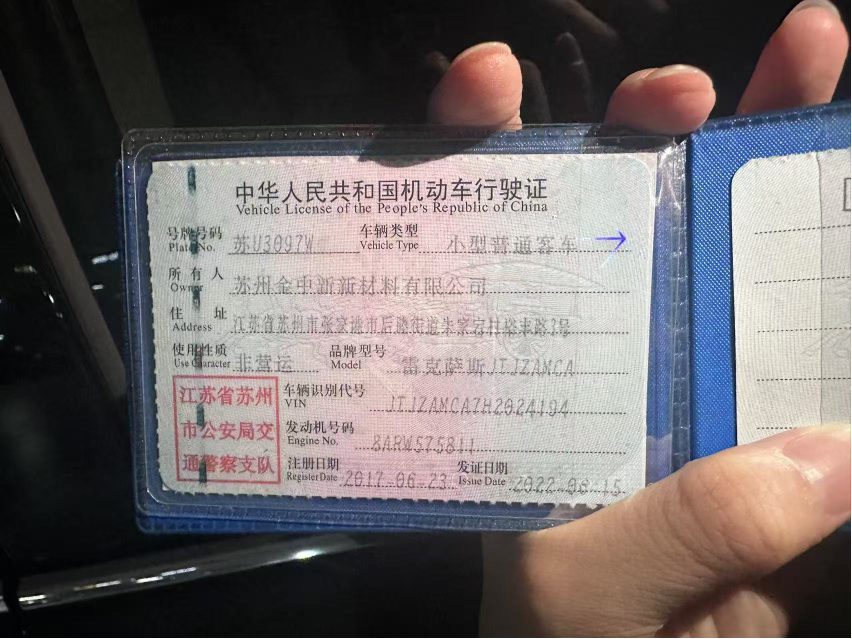 中华人民共和国机动车行驶证
Vehicle License of the People's Republic of China
号牌号码 苏U3097W 车辆类型 小型普通客车
Plate No. Vehicle Type
所有人 苏州金中新新材料有限公司
Owner
住址 江苏省苏州市张家港市后塍街道朱家宕村裕丰路2号
Address
使用性质 非营运 品牌型号 雷克萨斯JTJZAMCA
Use Character Model
江苏省苏州
市公安局交
通警察支队
车辆识别代号 JTJZAMCA7H2024194
VIN
发动机号码 8ARW575811
Engine No.
注册日期 2017-06-23 发证日期 2022-08-15
Register Date Issue Date